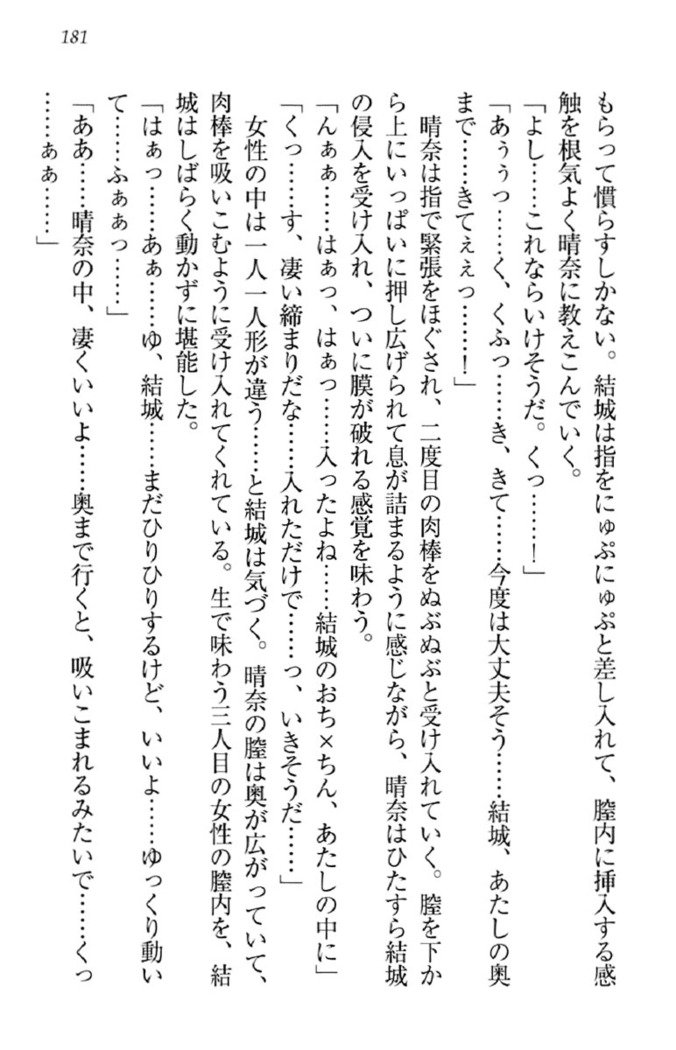 181
もらって慣らすしかない。結城は指をにゅぷにゅぷと差し入れて、膣内に挿入する感
触を根気よく晴奈に教えこんでいく。
「よし……これならいけそうだ。くっ………！」
「あぅぅっ……く、くふっ……き、きて……今度は大丈夫そう……結城、あたしの奥
まで……きてぇぇっ………！」
晴奈は指で緊張をほぐされ、二度目の肉棒をぬぶぬぶと受け入れていく。膣を下か
ら上にいっぱいに押し広げられて息が詰まるように感じながら、晴奈はひたすら結城
の侵入を受け入れ、ついに膜が破れる感覚を味わう。
「んぁぁ……はぁっ、はぁっ……入ったよね……結城のおち×ちん、あたしの中に」
「くっ……す、凄い締まりだな……入れただけで……っ、いきそうだ……」
女性の中は一人一人形が違う……と結城は気づく。晴奈の膣は奥が広がっていて、
肉棒を吸いこむように受け入れてくれている。生で味わう三人目の女性の膣内を、結
城はしばらく動かずに堪能した。
「はぁっ……あぁ……ゆ、結城……まだひりひりするけど、いいよ……ゆっくり動い
て……ふぁぁっ……」
「ああ……晴奈の中、凄くいいよ……奥まで行くと、吸いこまれるみたいで……くっ
……ぁぁ……」